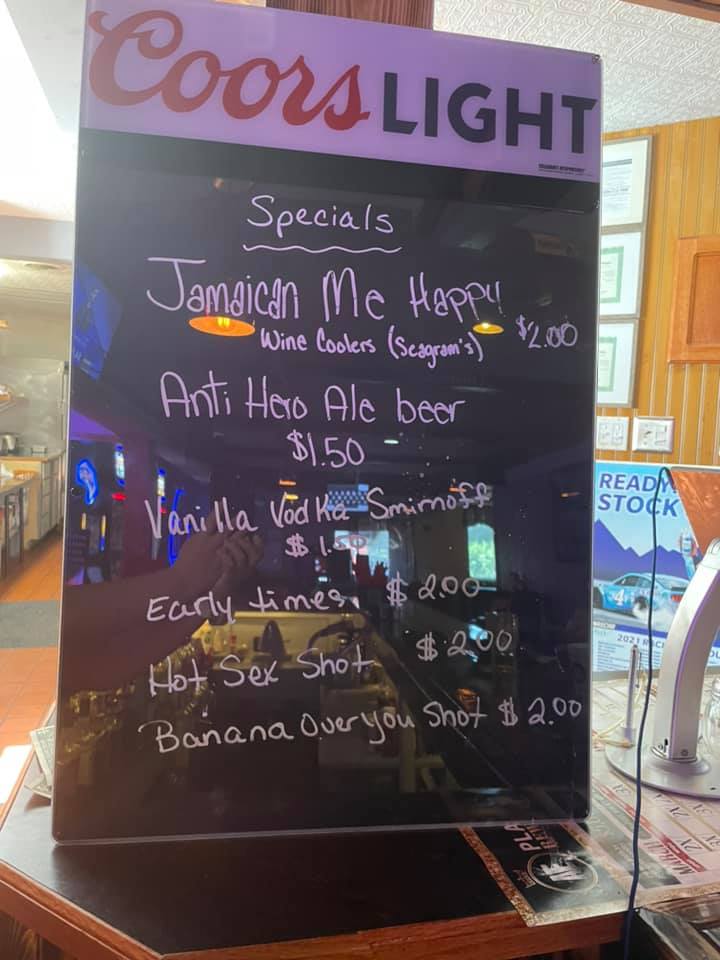 Coors LIGHT
Specials
Jamaican Me Happy
Wine Coolers (Seagram's) $2.00
Anti Hero Ale beer
$1.50
Vanilla Vodka Smirnoff
$1.50
Early times. $2.00
Hot Sex Shot $2.00
Banana Over you Shot $2.00
READY
STOCK
4
2021